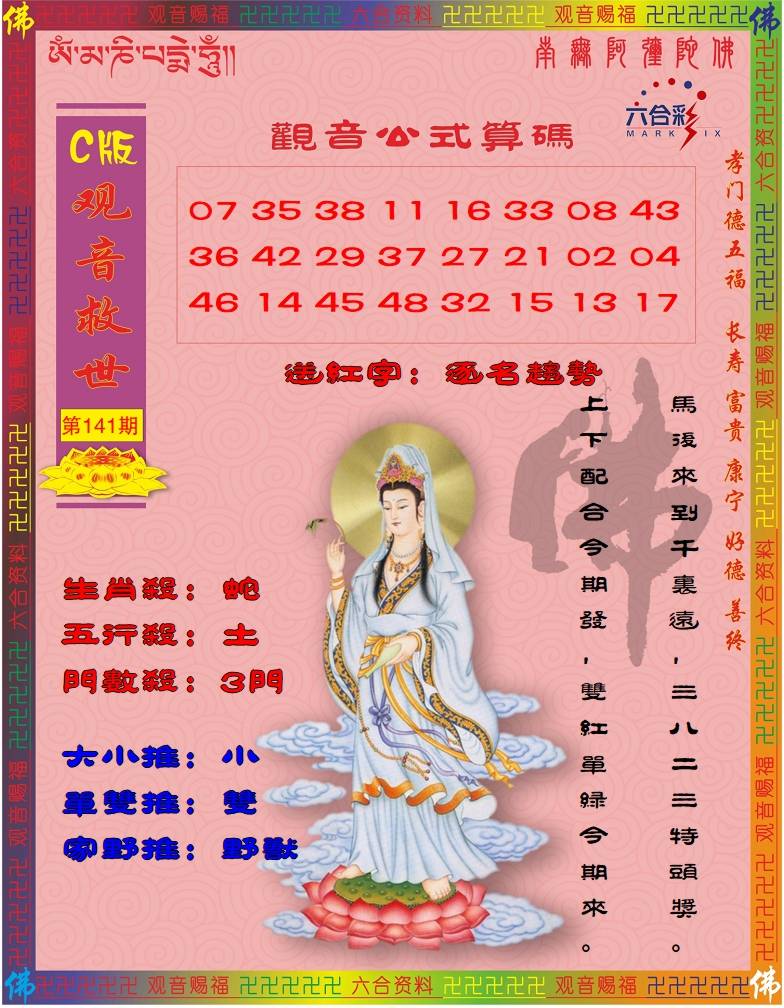 佛 卍卍卍卍卍 观音赐福 卍卍卍卍卍 六合资料 卍卍卍卍卍 观音赐福 卍卍卍卍卍 佛
ༀ་མ་ཎི་པདྨེ་ཧཱུྃ།།
南無阿彌陀佛
六合彩
MARK SIX
C版
观音救世
第141期
觀音公式算碼
07 35 38 11 16 33 08 43
36 42 29 37 27 21 02 04
46 14 45 48 32 15 13 17
送紅字：逐名趨勢
孝门德五福 长寿 富贵 康宁 好德 善终
馬後來到千裏遠，三八二三特頭獎。
上下配合今期發，雙紅單綠今期來。
佛
生肖殺：蛇
五行殺：土
門數殺：3門
大小推：小
單雙推：雙
家野推：野獸
佛 观音赐福 卍卍卍卍卍 六合资料 卍卍卍卍卍 观音赐福 卍卍卍卍卍 佛